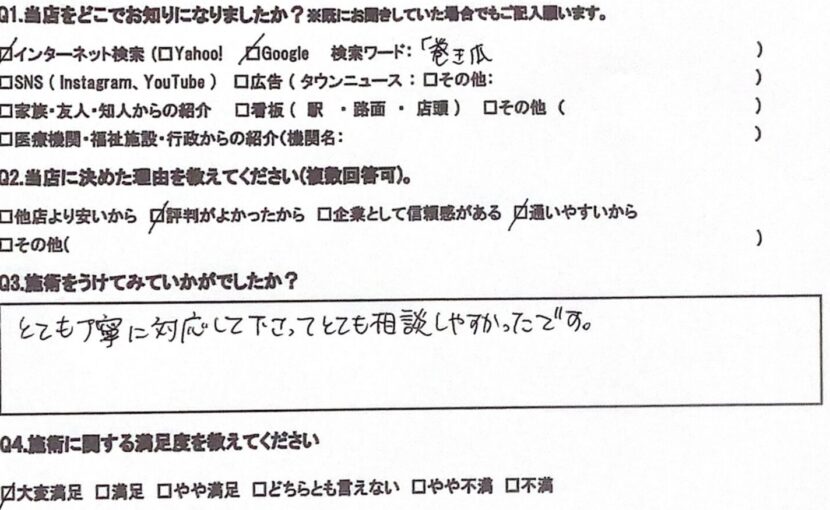 Q1.当店をどこでお知りになりましたか？※既にお聞きしていた場合でもご記入願います。
☑インターネット検索 (□Yahoo! ☑Google 検索ワード：「巻き爪 )
□SNS ( Instagram、YouTube ) □広告 ( タウンニュース ： □その他: )
□家族・友人・知人からの紹介 □看板 ( 駅 ・路面 ・ 店頭 ) □その他 ( )
□医療機関・福祉施設・行政からの紹介(機関名: )
Q2.当店に決めた理由を教えてください(複数回答可)。
□他店より安いから ☑評判がよかったから □企業として信頼感がある ☑通いやすいから
□その他( )
Q3.施術をうけてみていかがでしたか？
とても丁寧に対応して下さってとても相談しやすかったです。
Q4.施術に関する満足度を教えてください
☑大変満足 □満足 □やや満足 □どちらとも言えない □やや不満 □不満